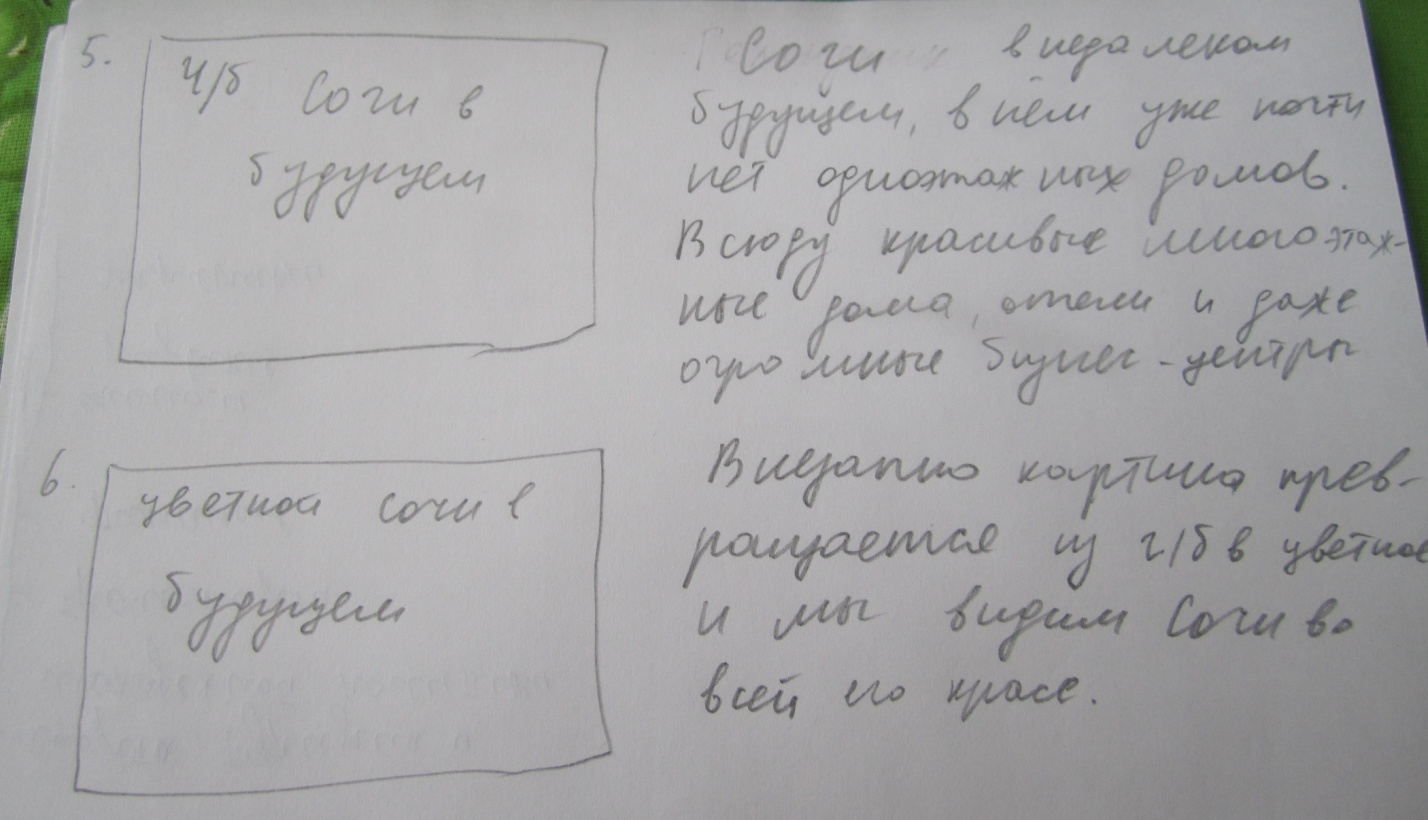 5.
Ч/б Сочи в
будущем
Сочи в недалеком
будущем, в нём уже почти
нет одноэтажных домов.
Всюду красивые многоэтаж-
ные дома, отели и даже
огромные бизнес-центры
6.
цветной сочи в
будущем
Внезапно картина прев-
ращается из ч/б в цветное
и мы видим Сочи во
всей его красе.